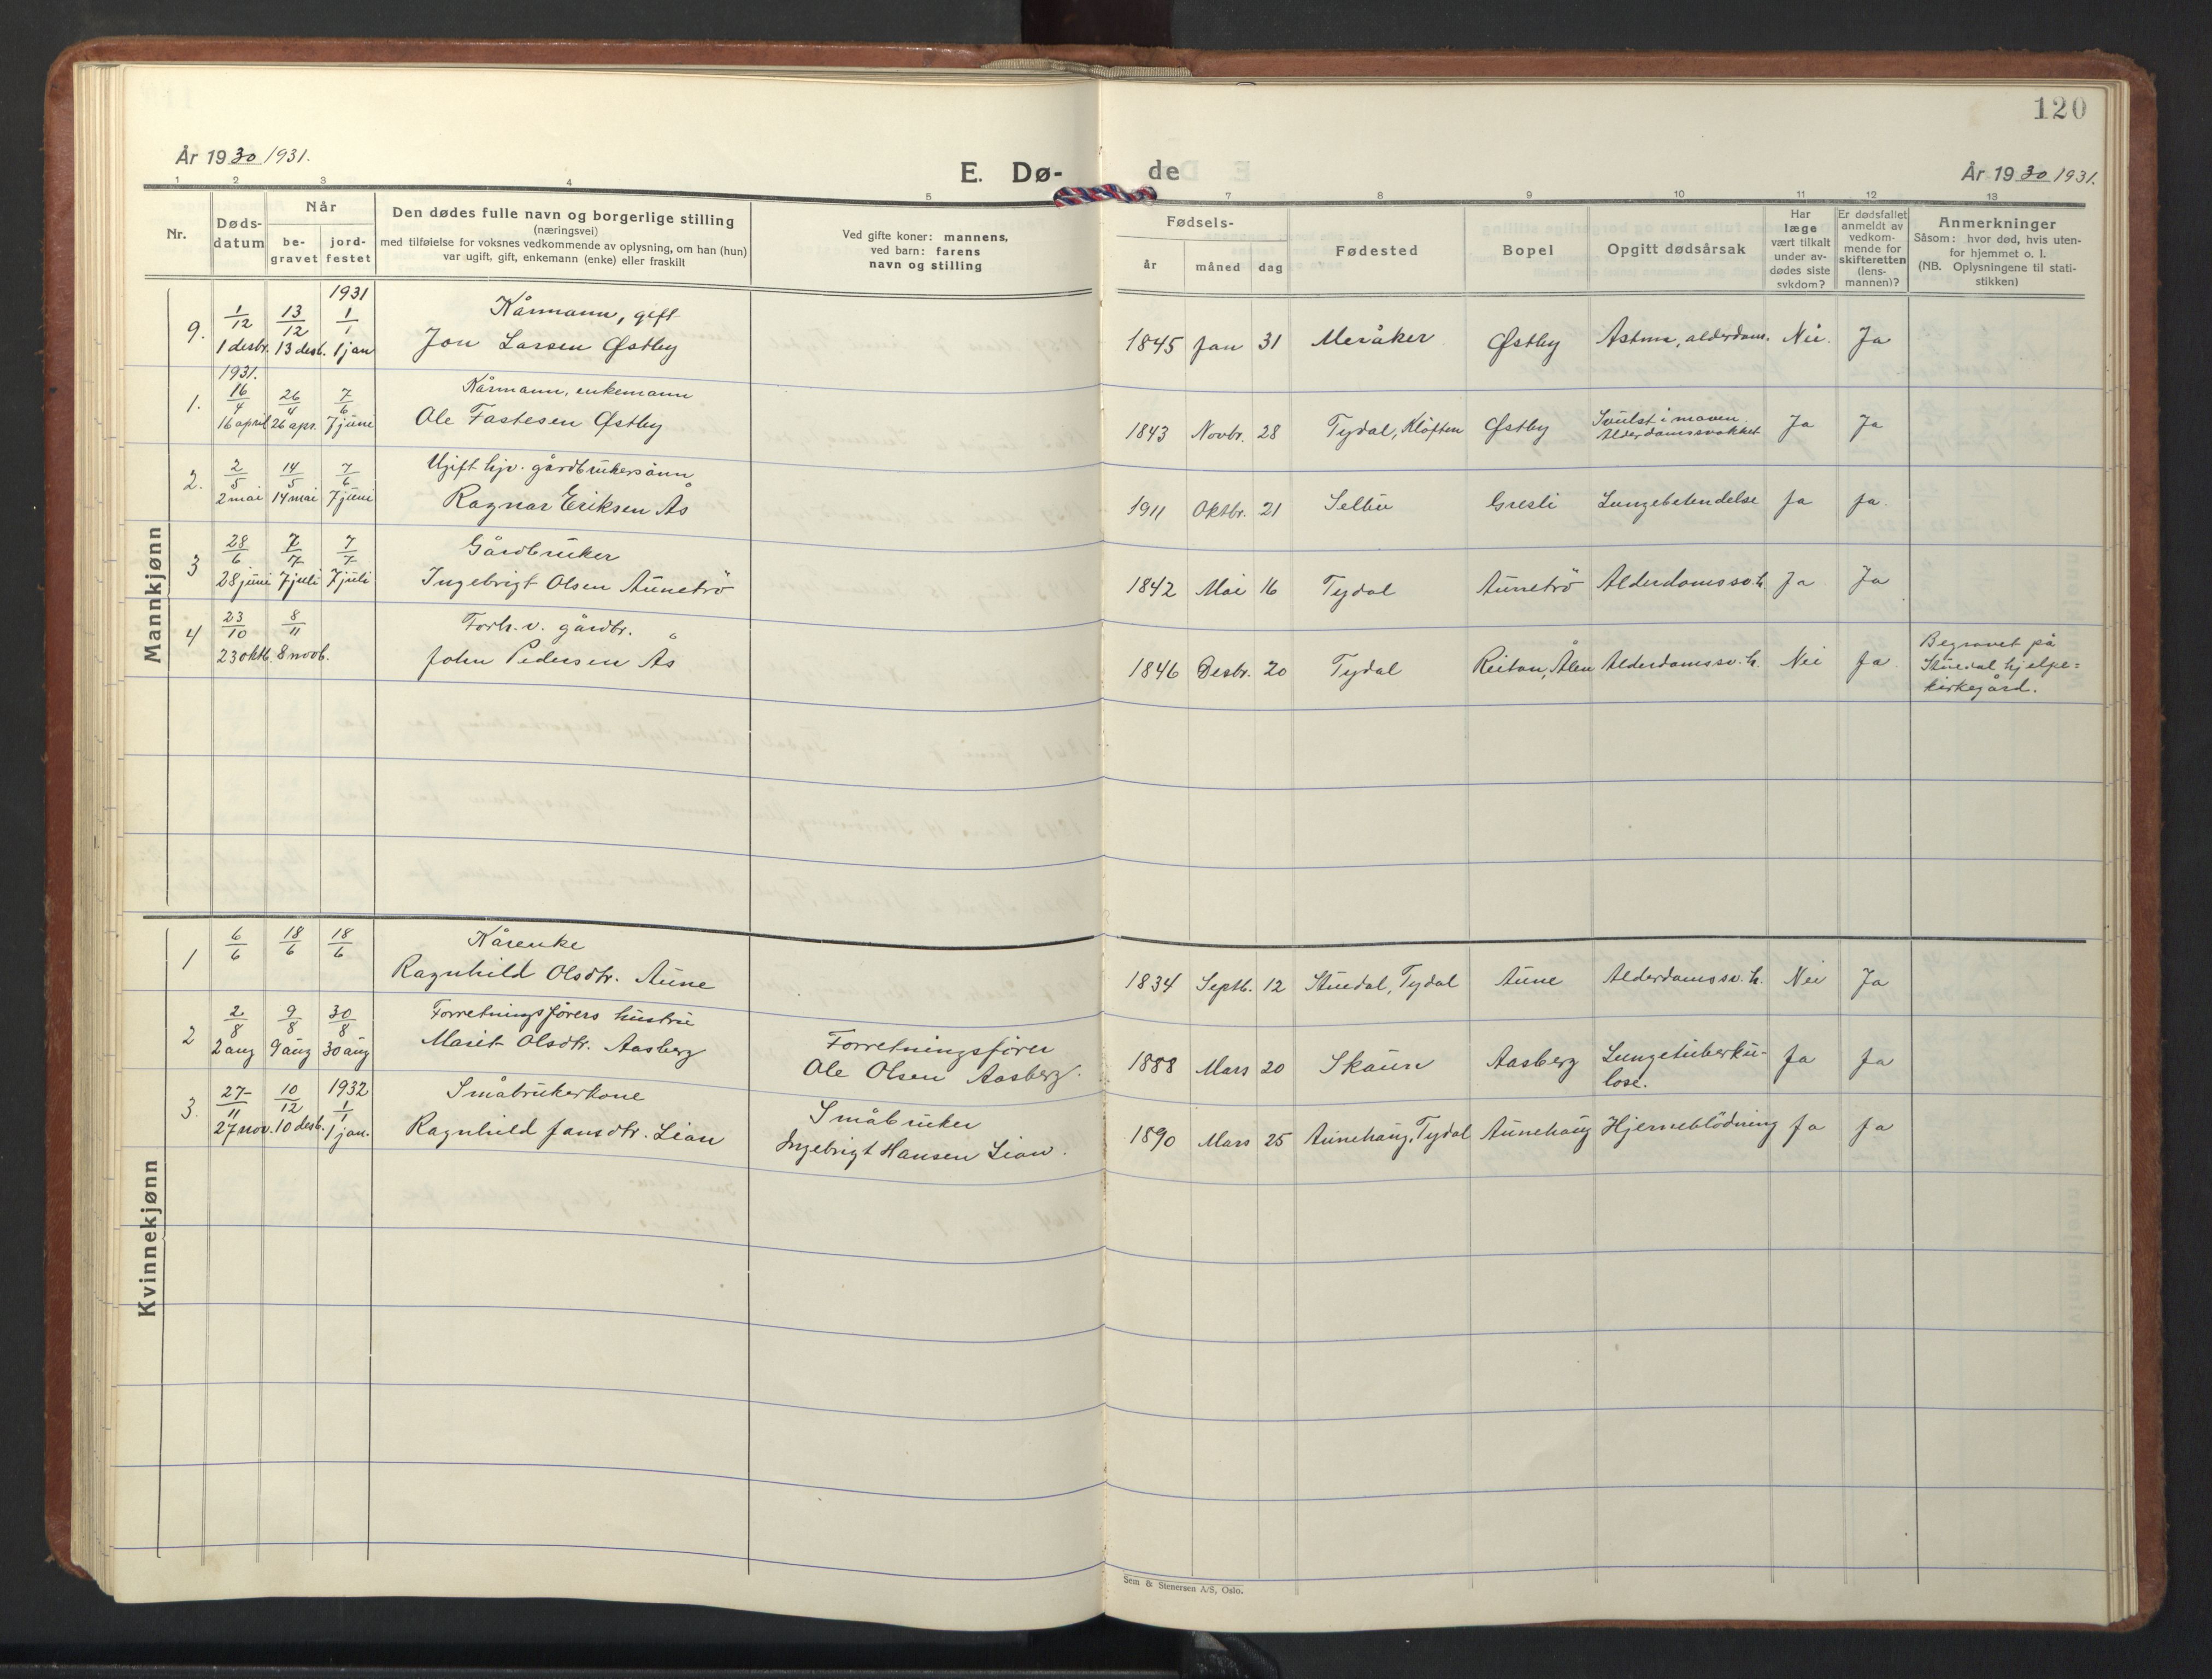 120
År 1930/1931.
E. Dø-
de
År 1930/1931.
1 2 3 4 5 7 8 9 10 11 12 13
Nr.
Døds-
datum
Når
be-
gravet
jord-
festet
Den dødes fulle navn og borgerlige stilling
(næringsvei)
med tilføielse for voksnes vedkommende av oplysning, om han (hun)
var ugift, gift, enkemann (enke) eller fraskilt
Ved gifte koner: mannens,
ved barn: farens
navn og stilling
Fødsels-
år måned dag
Fødested
Bopel
Opgitt dødsårsak
Har
læge
vært tilkalt
under av-
dødes siste
sykdom?
Er dødsfallet
anmeldt av
vedkom-
mende for
skifteretten
(lens-
mannen)?
Anmerkninger
Såsom: hvor død, hvis uten-
for hjemmet o. l.
(NB. Oplysningene til stati-
stikken)
Mannkjønn
1931
9. 1/12 13/12 1/1 Kårmann, gift
1 desbr. 13 desb. 1 jan Jon Larsen Østby 1845 Jan 31 Meråker Østby Astma, alderdom. Nei. Ja
1931.
1. 16/4 26/4 7/6 Kårmann, enkemann
16 april 26 apr. 7 juni Ole Fastesen Østby 1843 Novbr. 28 Tydal, Kløften Østby Svulst i maven. Alderdomssvakhet Ja Ja
2. 2/5 14/5 7/6 Ugift hjv. gårdbrukersønn
2 mai 14 mai 7 juni Ragnar Eriksen Ås 1911 Oktbr. 21 Selbu Gresli Lungebetendelse Ja Ja.
3 28/6 7/7 7/7 Gårdbruker
28 juni 7 juli 7 juli Ingebrigt Olsen Aunetrö 1842 Mai 16 Tydal Aunetrö Alderdomssv.h. Ja Ja
4 23/10 8/11 Forh.v. gårdbr.
23 oktb. 8 novb. John Pedersen Ås 1846 Desbr. 20 Tydal Reitan, Ålen Alderdomssv.h. Nei Ja
Begravet på
Stuedal hjelpe=
kirkegård.
Kvinnekjønn
1 6/6 18/6 18/6 Kårenke
Ragnhild Olsdtr. Aune 1834 Septb. 12 Stuedal, Tydal Aune Alderdomssv.h. Nei Ja
2 2/8 9/8 30/8 Forretningsförers hustru
2 aug 9 aug 30 aug Marit Olsdtr. Aasberg Forretningsfører
Ole Olsen Aasberg. 1888 Mars 20 Skaun Aasberg Lungetuberku-
lose. Ja Ja
1932
3. 27/11 10/12 1/1 Småbrukerkone
27 nov. 10 desb. 1 jan. Ragnhild Jansdtr. Lian Småbruker
Ingebrigt Hansen Lian. 1890 Mars 25 Aunehaug, Tydal Aunehaug Hjerneblödning Ja Ja
Sem & Stenersen A/S, Oslo.